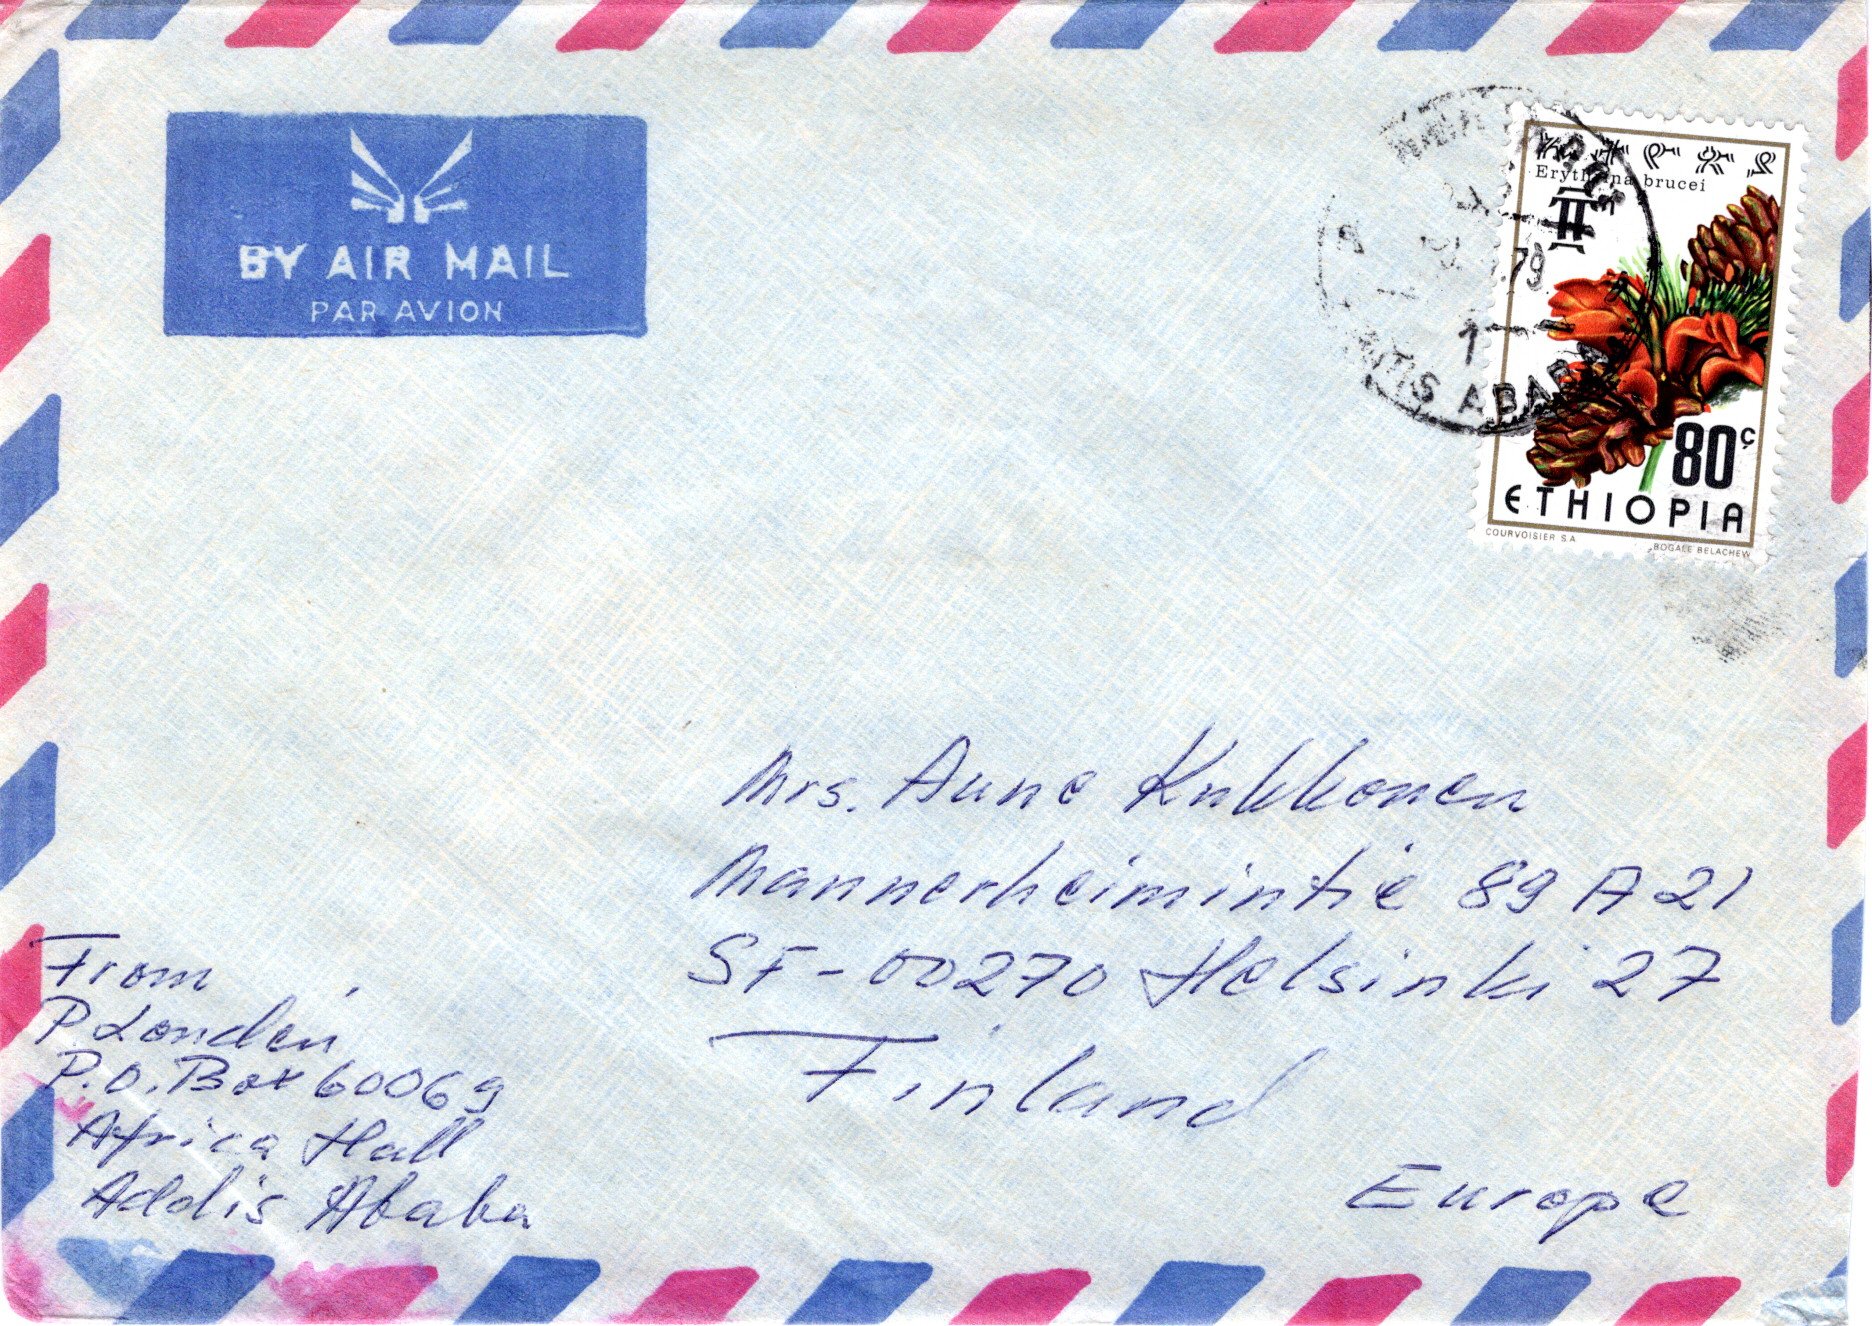 BY AIR MAIL
PAR AVION
Erythrina brucei
79
80c
ETHIOPIA
COURVOISIER S.A.
BOGALE BELACHEW
Mrs. Aune Kukkonen
Mannerheimintie 89 A 21
SF-00270 Helsinki 27
Finland
Europe
From,
P. Londen,
P.O. Box 60069
Africa Hall
Addis Ababa